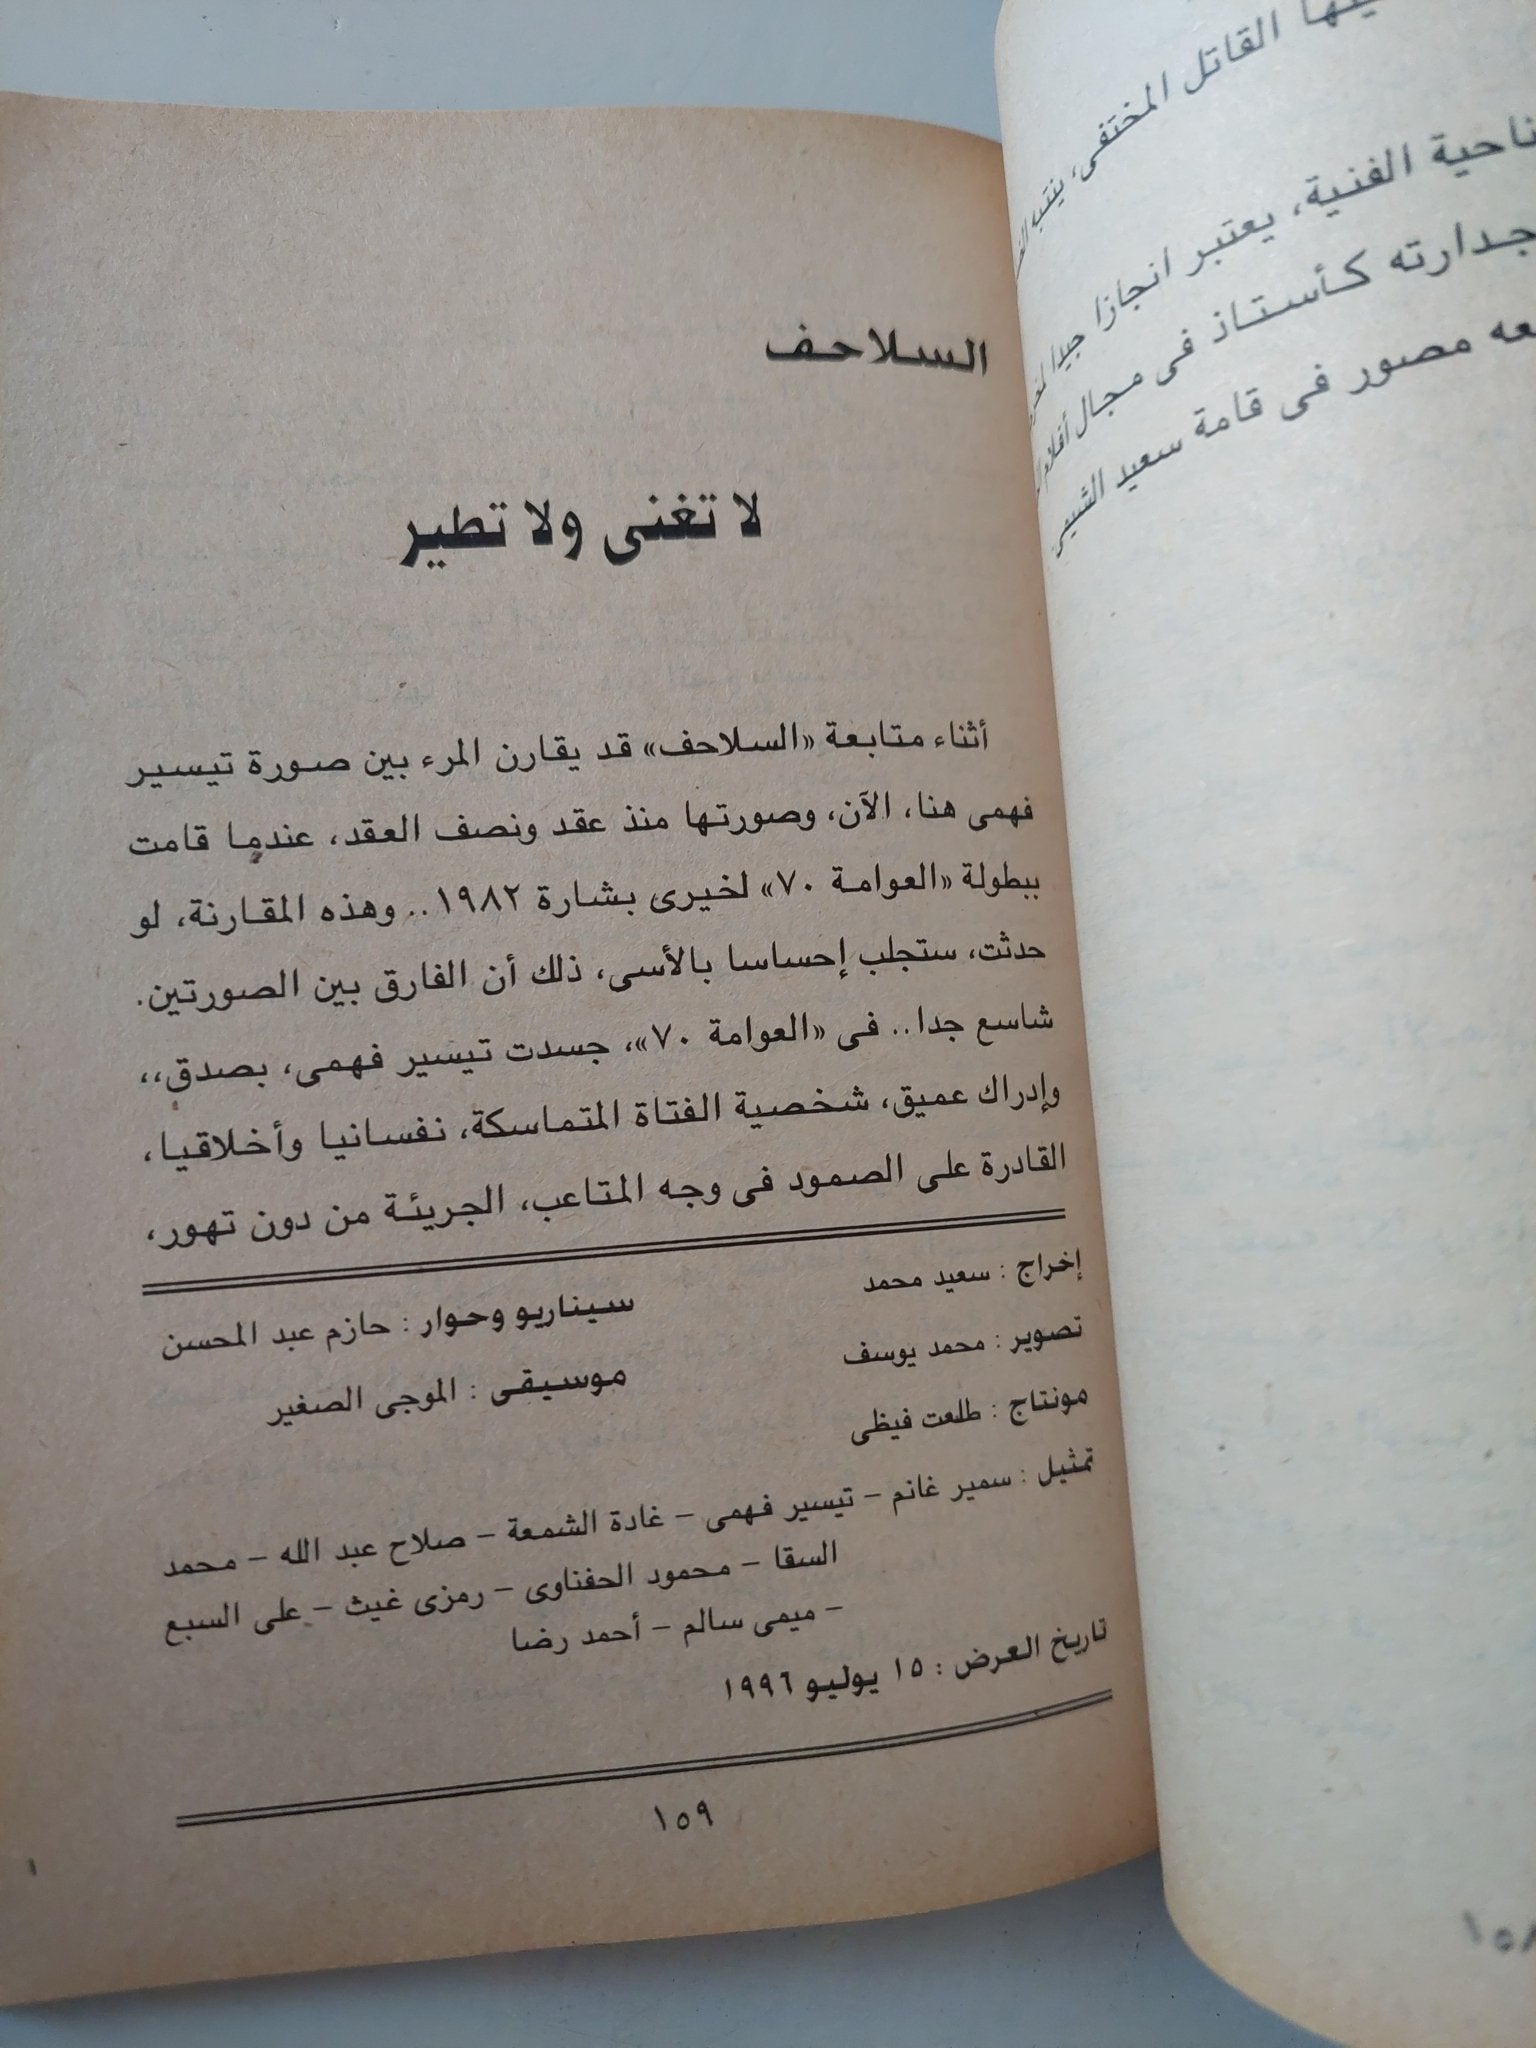 السلاحف
لا تغنى ولا تطير
أثناء متابعة «السلاحف» قد يقارن المرء بين صورة تيسير
فهمى هنا، الآن، وصورتها منذ عقد ونصف العقد، عندما قامت
ببطولة «العوامة ٧٠» لخيرى بشارة ١٩٨٢.. وهذه المقارنة، لو
حدثت، ستجلب إحساسا بالأسى، ذلك أن الفارق بين الصورتين.
شاسع جدا.. فى «العوامة ٧٠»، جسدت تيسير فهمى، بصدق،،
وإدراك عميق، شخصية الفتاة المتماسكة، نفسانيا وأخلاقيا،
القادرة على الصمود فى وجه المتاعب، الجريئة من دون تهور،
إخراج : سعيد محمد
سيناريو وحوار : حازم عبد المحسن
تصوير : محمد يوسف
موسيقى : الموجى الصغير
مونتاج : طلعت فيظى
تمثيل : سمير غانم – تيسير فهمى – غادة الشمعة – صلاح عبد الله – محمد
السقا – محمود الحفناوى – رمزى غيث – على السبع
– ميمى سالم – أحمد رضا
تاريخ العرض : ١٥ يوليو ١٩٩٦
١٥٩
القاتل المختفى، ينتبه
ناحية الفنية، يعتبر انجازا جيدا
جدارته كأستاذ فى مجال أفلام
مصور فى قامة سعيد الشيمى
١٥٨